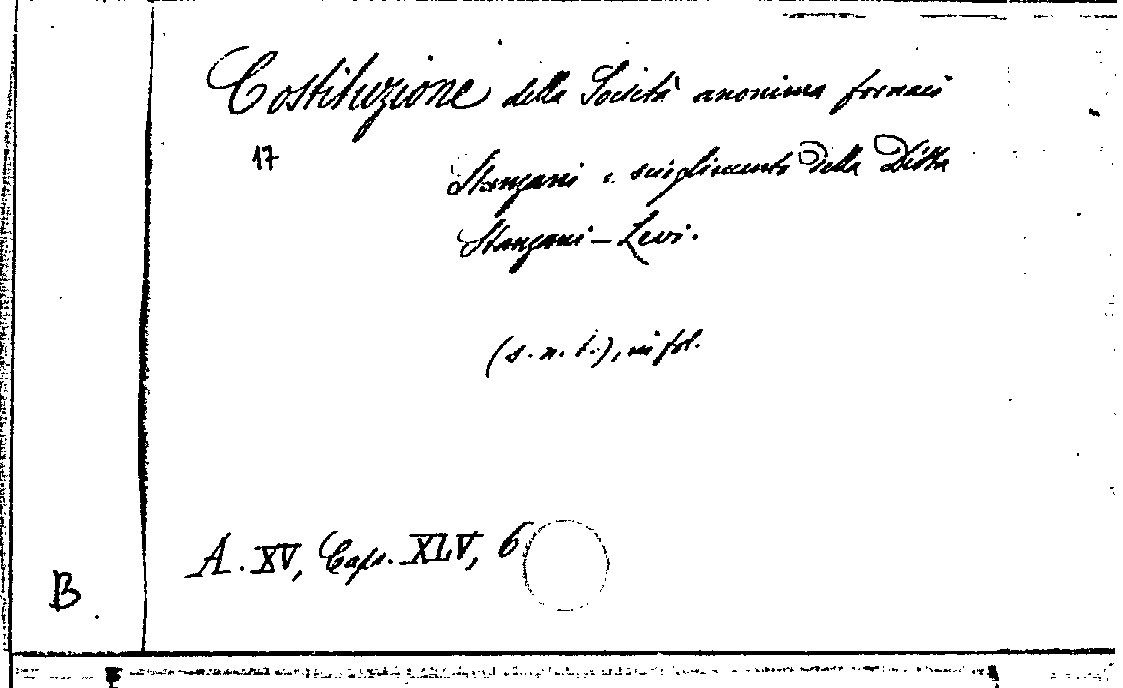 Costituzione della Società anonima fornaci
17
Stanzani e scioglimento della Ditta
Stanzani - Levi.
(s. n. t.), in fol.
A. XV, Caps. XLV, 6
B